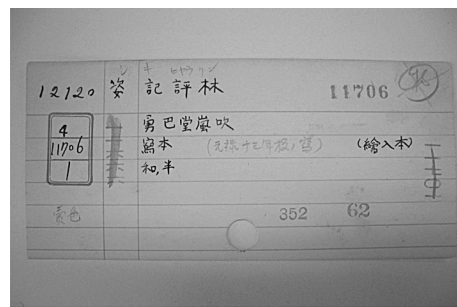 シ キ ヒヤウリン
12120 姿 記評林 11706
4
11706
1
勇巴堂嵐吹
寫本 (元禄十三年板ノ寫) (繪入本)
和,半
黄色 352 62